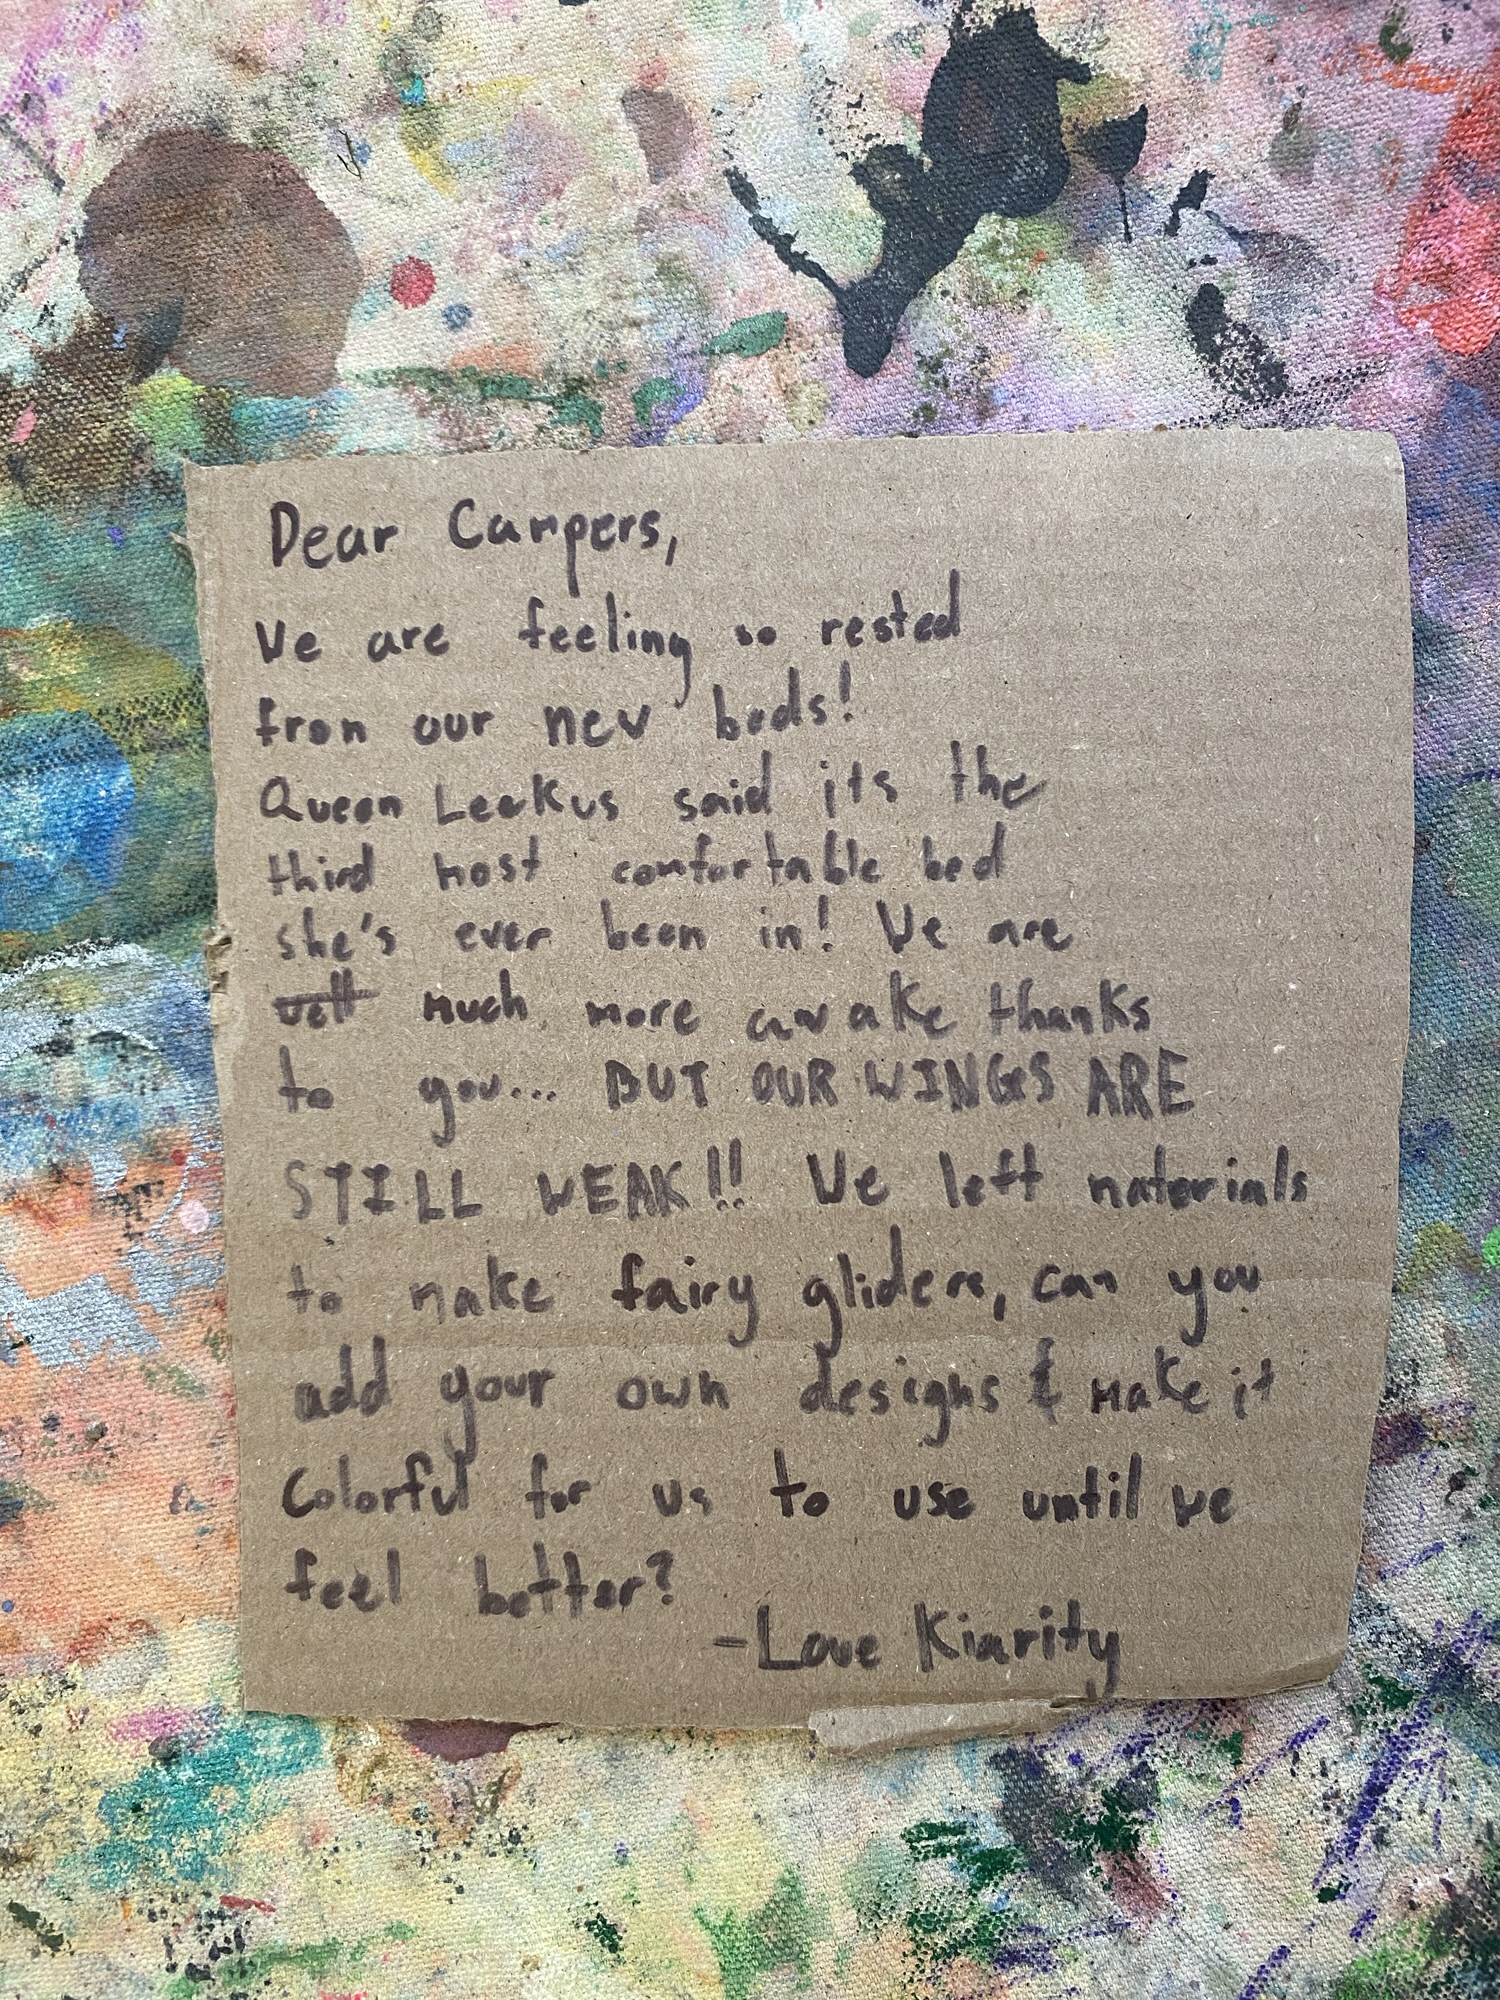 Dear Campers,
We are feeling so rested
from our new beds!
Queen Leekus said its the
third most comfortable bed
she's ever been in! We are
much more awake thanks
to you... BUT OUR WINGS ARE
STILL WEAK!! We left materials
to make fairy gliders, can you
add your own designs & make it
Colorful for us to use until we
feel better?
-Love Kiarity